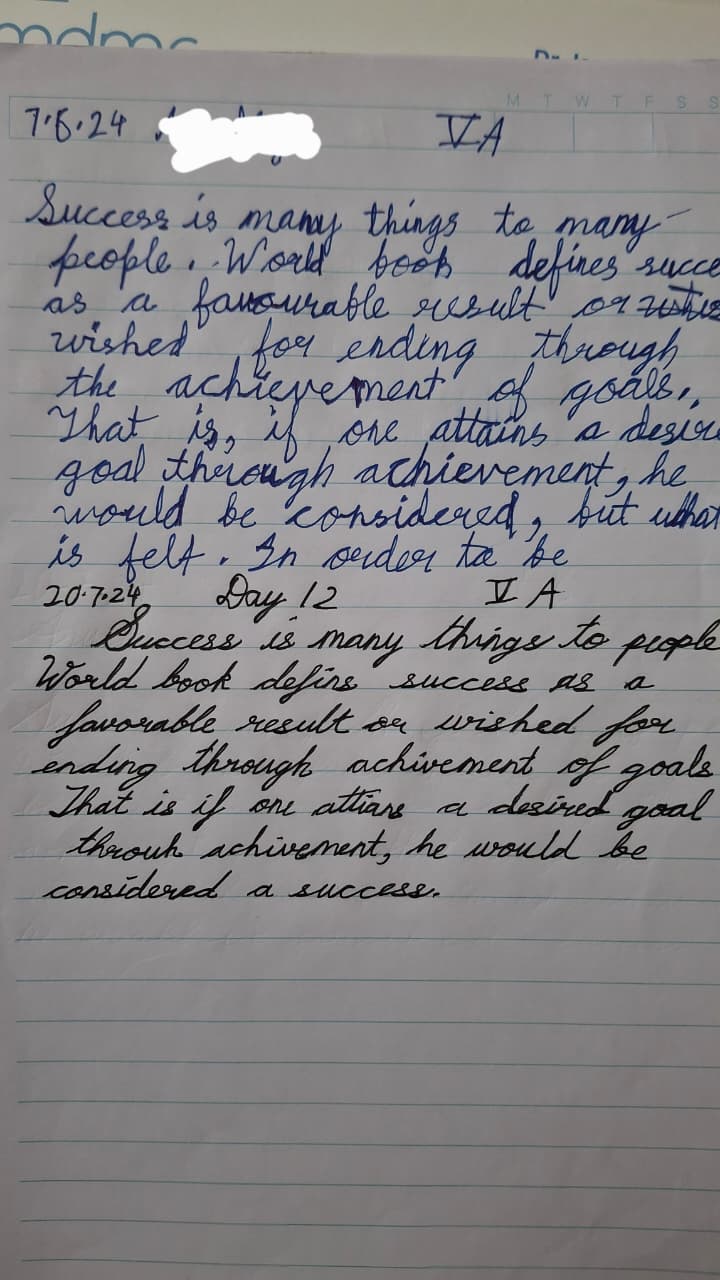 mdmc
M T W T F S S
7.6.24 V A
Success is many things to many
people. World book defines succe
as a favourable result or
wished for ending through
the achievement of goals.
That is, if one attains a desire
goal through achievement, he
would be considered, but what
is felt. In order to be
20.7.24 Day 12 V A
Success is many things to people
World book defins success as a
favorable result or wished for
ending through achivement of goals
That is if one attians a desired goal
throuh achivement, he would be
considered a success.